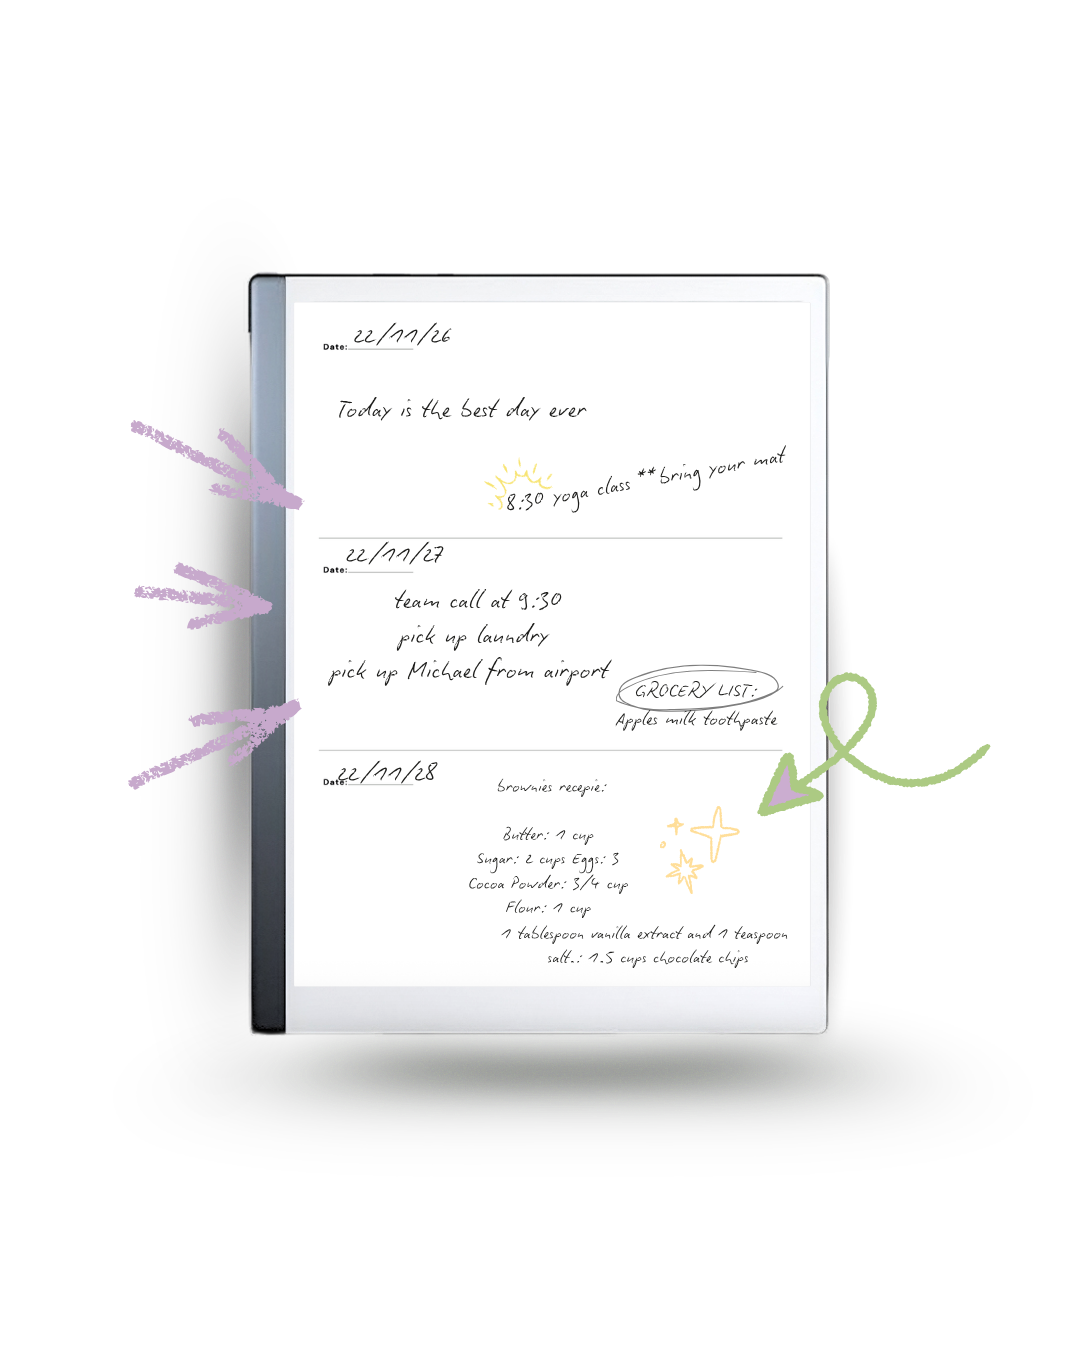 Date: 22/11/26
Today is the best day ever
8:30 yoga class **bring your mat
Date: 22/11/27
team call at 9:30
pick up laundry
pick up Michael from airport
GROCERY LIST:
Apples milk toothpaste
Date: 22/11/28
brownies recepie:
Butter: 1 cup
Sugar: 2 cups Eggs: 3
Cocoa Powder: 3/4 cup
Flour: 1 cup
1 tablespoon vanilla extract and 1 teaspoon
salt.: 1.5 cups chocolate chips